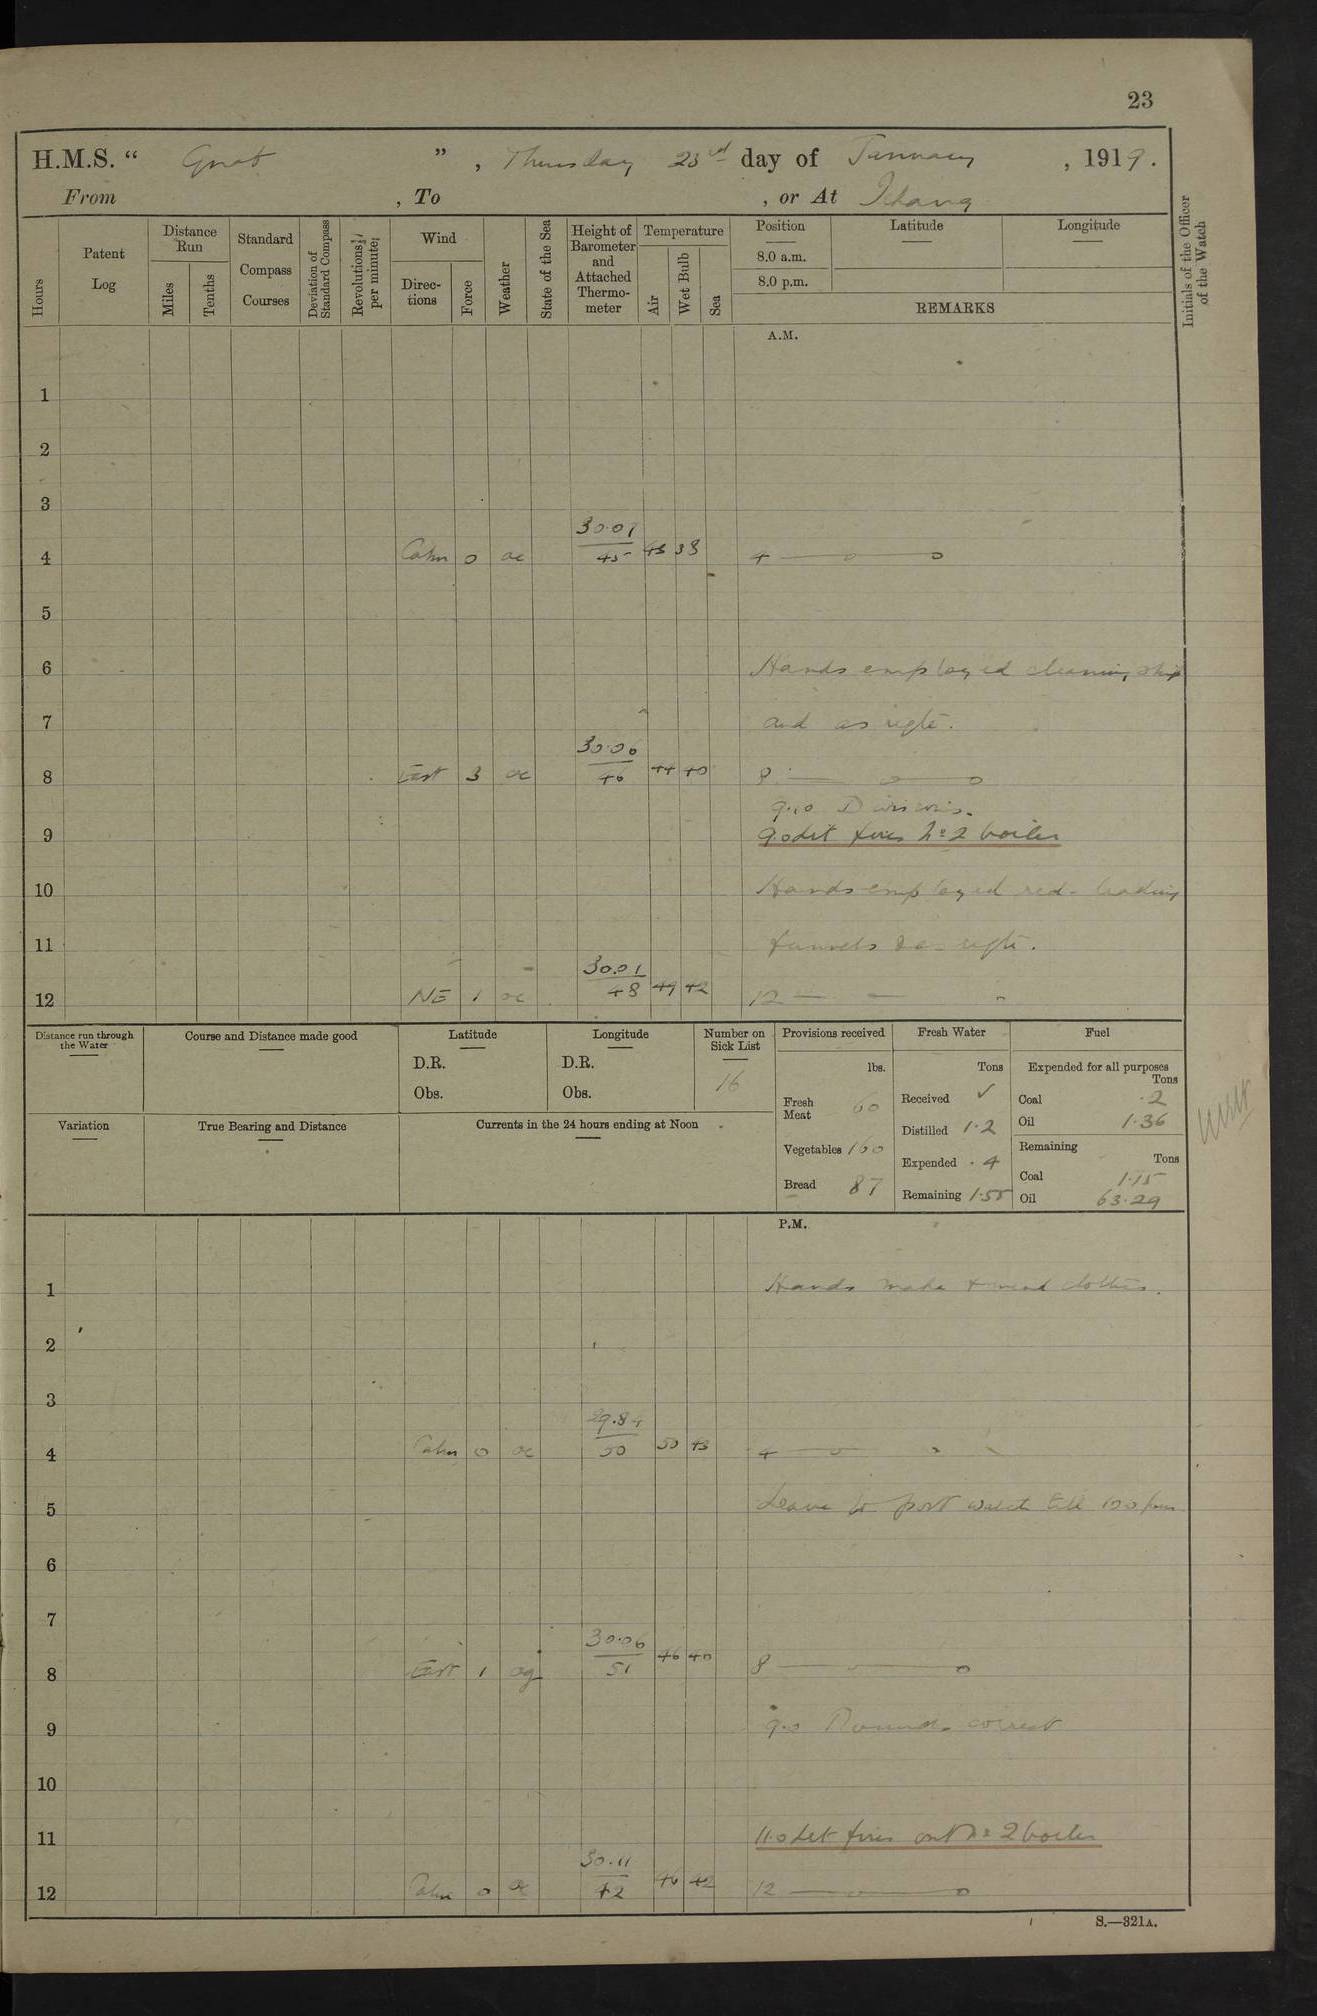 23
H.M.S. " Gnat " , Thursday 23rd day of January , 1919.
From , To , or At Ichang
Hours
Patent Log
Distance Run
Miles
Tenths
Standard Compass Courses
Deviation of Standard Compass
Revolutions per minute
Wind
Directions
Force
Weather
State of the Sea
Height of Barometer and Attached Thermometer
Temperature
Air
Wet Bulb
Sea
Position
8.0 a.m.
8.0 p.m.
Latitude
Longitude
REMARKS
Initials of the Officer of the Watch
A.M.
1
2
3
4 Calm 0 oc 30.07 45 43 38 4 — o — o
5
6 Hands employed cleaning ship
7 and as reqte.
8 East 3 oc 30.06 46 44 40 8 — o — o
9.10 Divisions.
9 9.0 Lit fires No 2 boiler
10 Hands employed red-leading
11 funnels & as reqte.
12 NE 1 oc 30.01 48 49 42 12 — — "
Distance run through the Water
Course and Distance made good
Latitude
D.R.
Obs.
Longitude
D.R.
Obs.
Number on Sick List
16
Provisions received
lbs.
Fresh Meat 60
Vegetables 160
Bread 87
Fresh Water
Tons
Received ✓
Distilled 1.2
Expended .4
Remaining 1.55
Fuel
Expended for all purposes
Tons
Coal .2
Oil 1.36
Remaining
Tons
Coal 1.15
Oil 63.29
Variation
True Bearing and Distance
Currents in the 24 hours ending at Noon
P.M.
1 Hands make & mend clothes.
2
3
4 Calm 0 oc 29.84 50 50 43 4 — o — o
5 Leave to port watch till
6
7
8 East 1 og 30.06 51 46 40 8 — o
9 9.0 Rounds correct
10
11 11.0 Let fires out No 2 boiler
12 Calm 0 oc 30.11 42 46 42 12 — o — o
S.—321A.